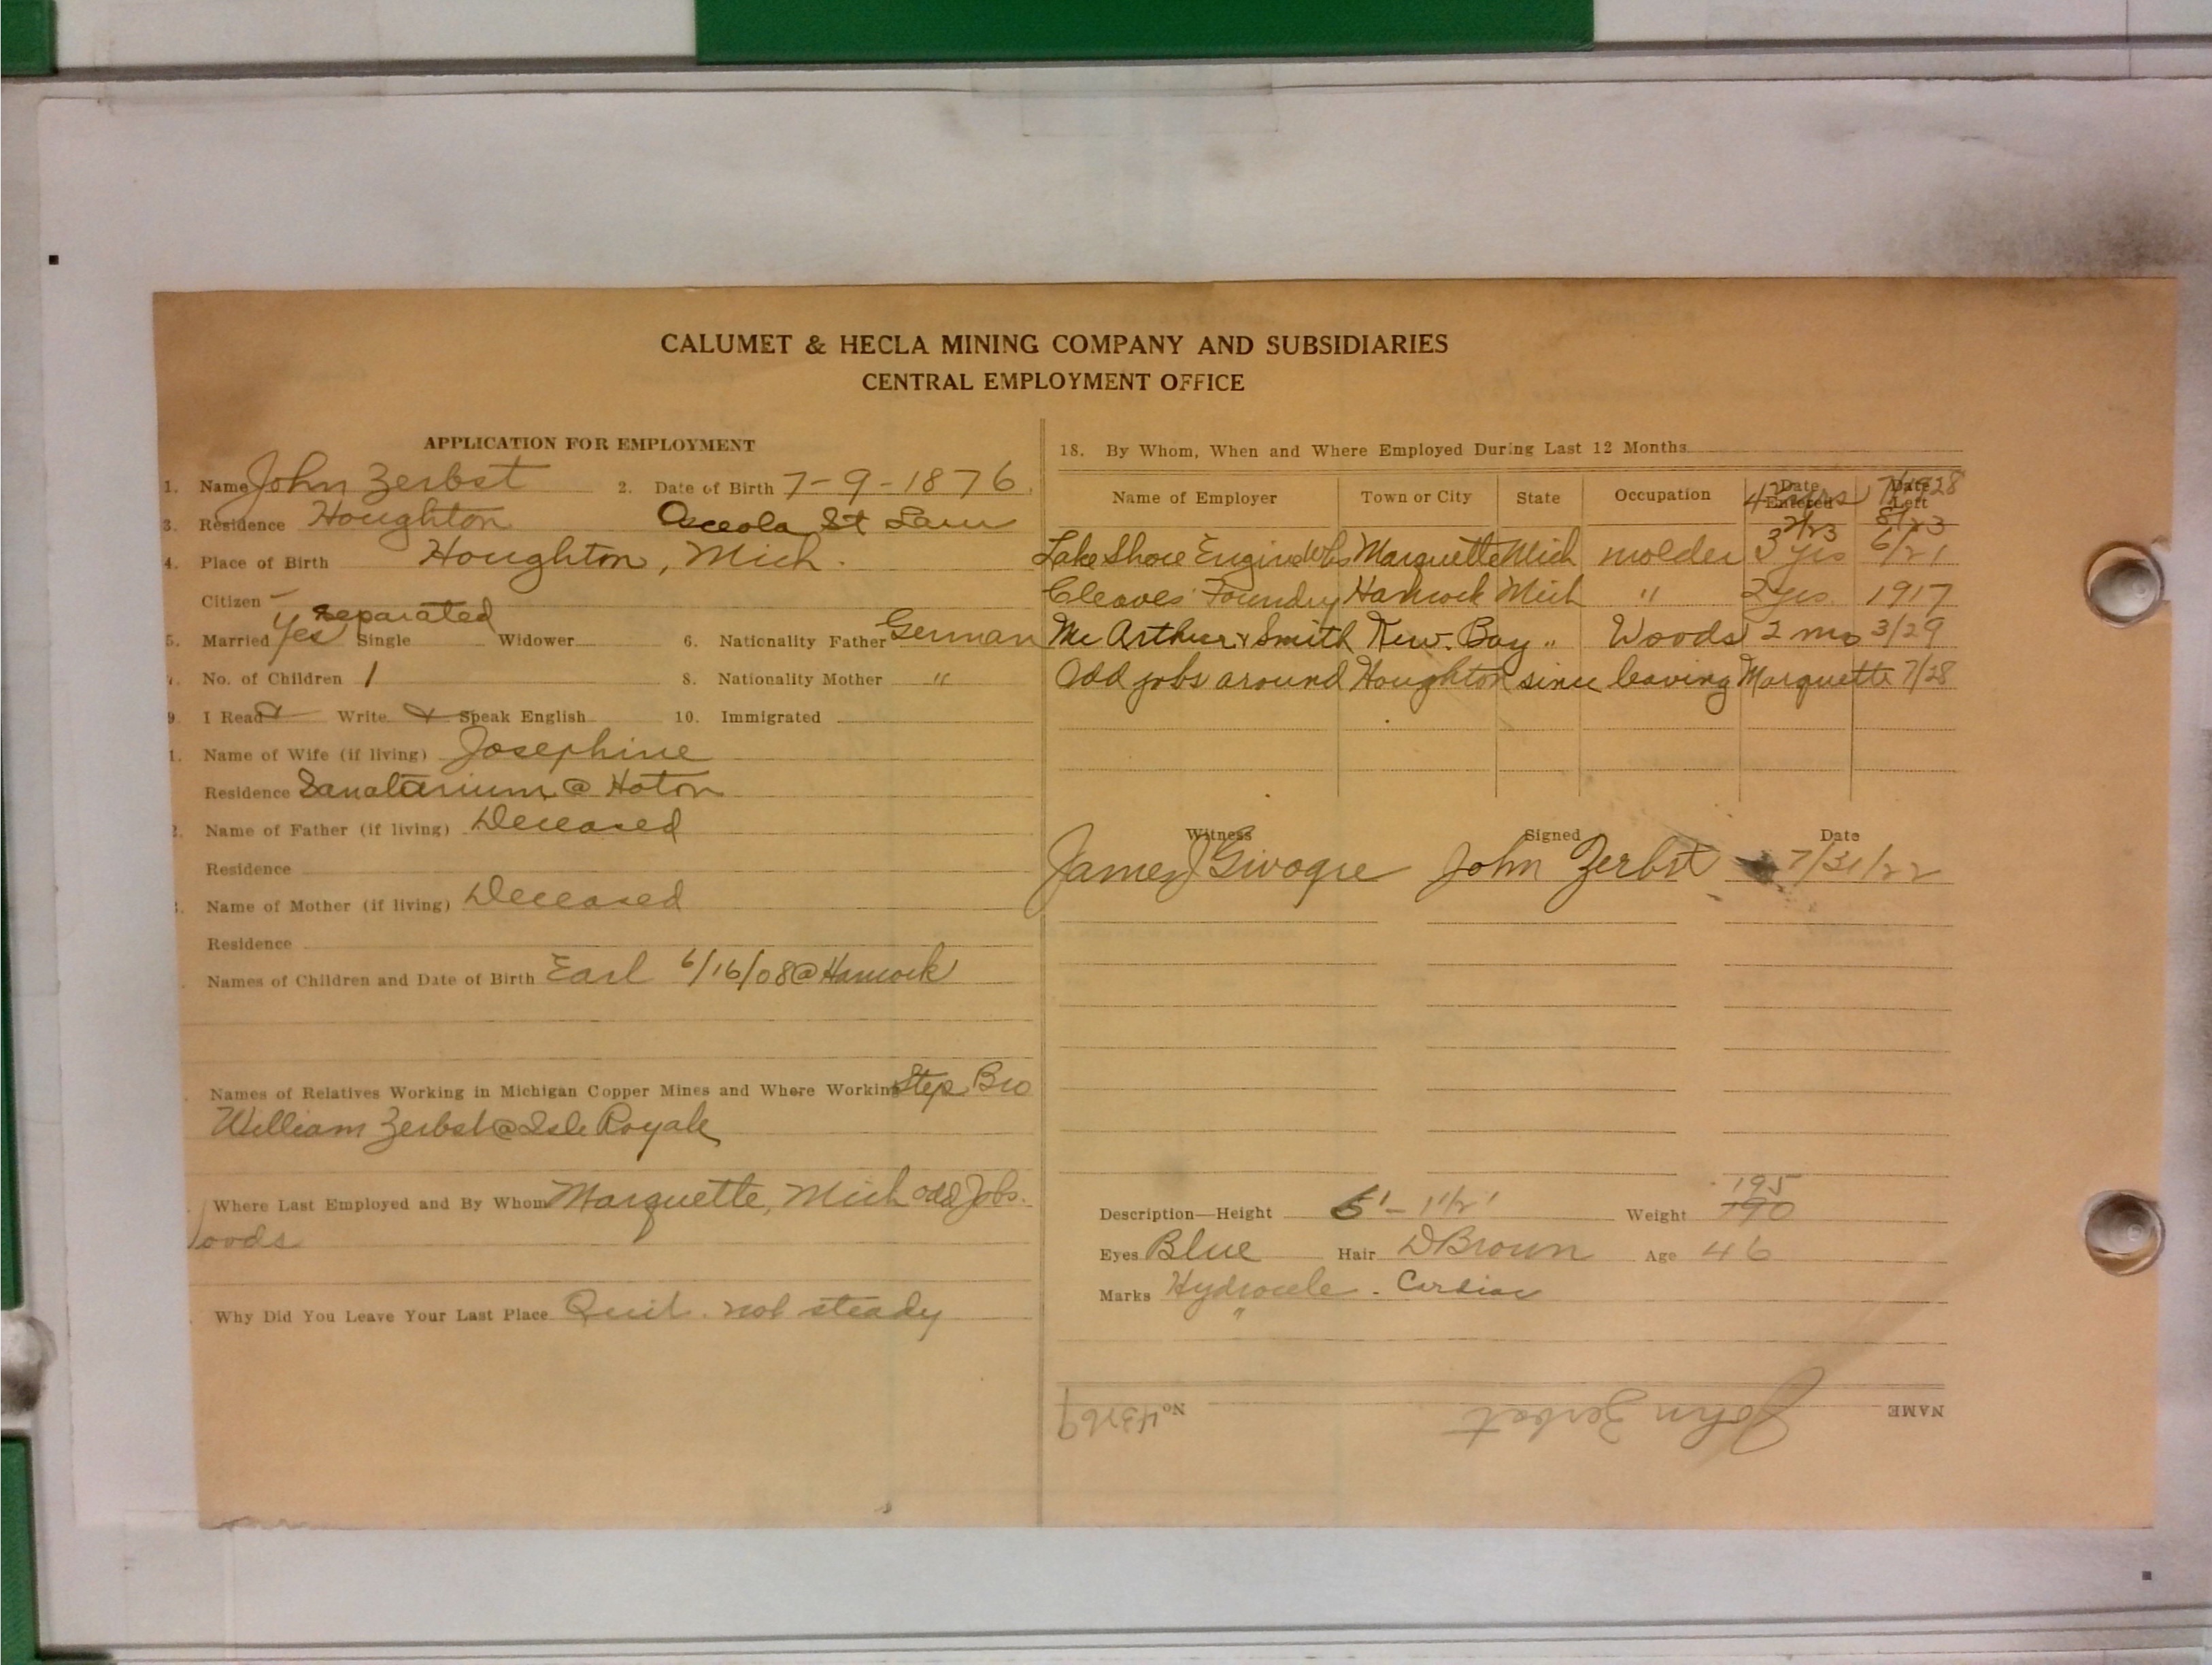 CALUMET & HECLA MINING COMPANY AND SUBSIDIARIES
CENTRAL EMPLOYMENT OFFICE
APPLICATION FOR EMPLOYMENT
1. Name John Zerbst 2. Date of Birth 7-9-1876
3. Residence Houghton Osceola St
4. Place of Birth Houghton, Mich.
Citizen
separated
5. Married Yes Single Widower 6. Nationality Father German
No. of Children 1 8. Nationality Mother "
9. I Read Write Speak English 10. Immigrated
1. Name of Wife (if living) Josephine
Residence Sanatarium @ Hoton
2. Name of Father (if living) Deceased
Residence
Name of Mother (if living) Deceased
Residence
Names of Children and Date of Birth Earl 6/16/08 @ Hancock
Names of Relatives Working in Michigan Copper Mines and Where Working Step Bro
William Zerbst @ Isle Royale
Where Last Employed and By Whom Marquette, Mich odd Jobs.
oods
Why Did You Leave Your Last Place Quit. not steady
18. By Whom, When and Where Employed During Last 12 Months
Name of Employer Town or City State Occupation Date Entered Date Left
8/23
Lake Shore Engine Wks Marquette Mich molder 3 yrs 6/21
Cleaves Foundry Hancock Mich " 2 yrs. 1917
Mc Arthur & Smith Kew. Bay " Woods 2 mo 3/29
Odd jobs around Houghton since leaving Marquette 7/28
Witness Signed Date
James J John Zerbst 7/31/22
195
Description—Height 1 1/2" Weight 190
Eyes Blue Hair D Brown Age 46
Marks Hydrocele. Cardiac
"
NAME John Zerbst No